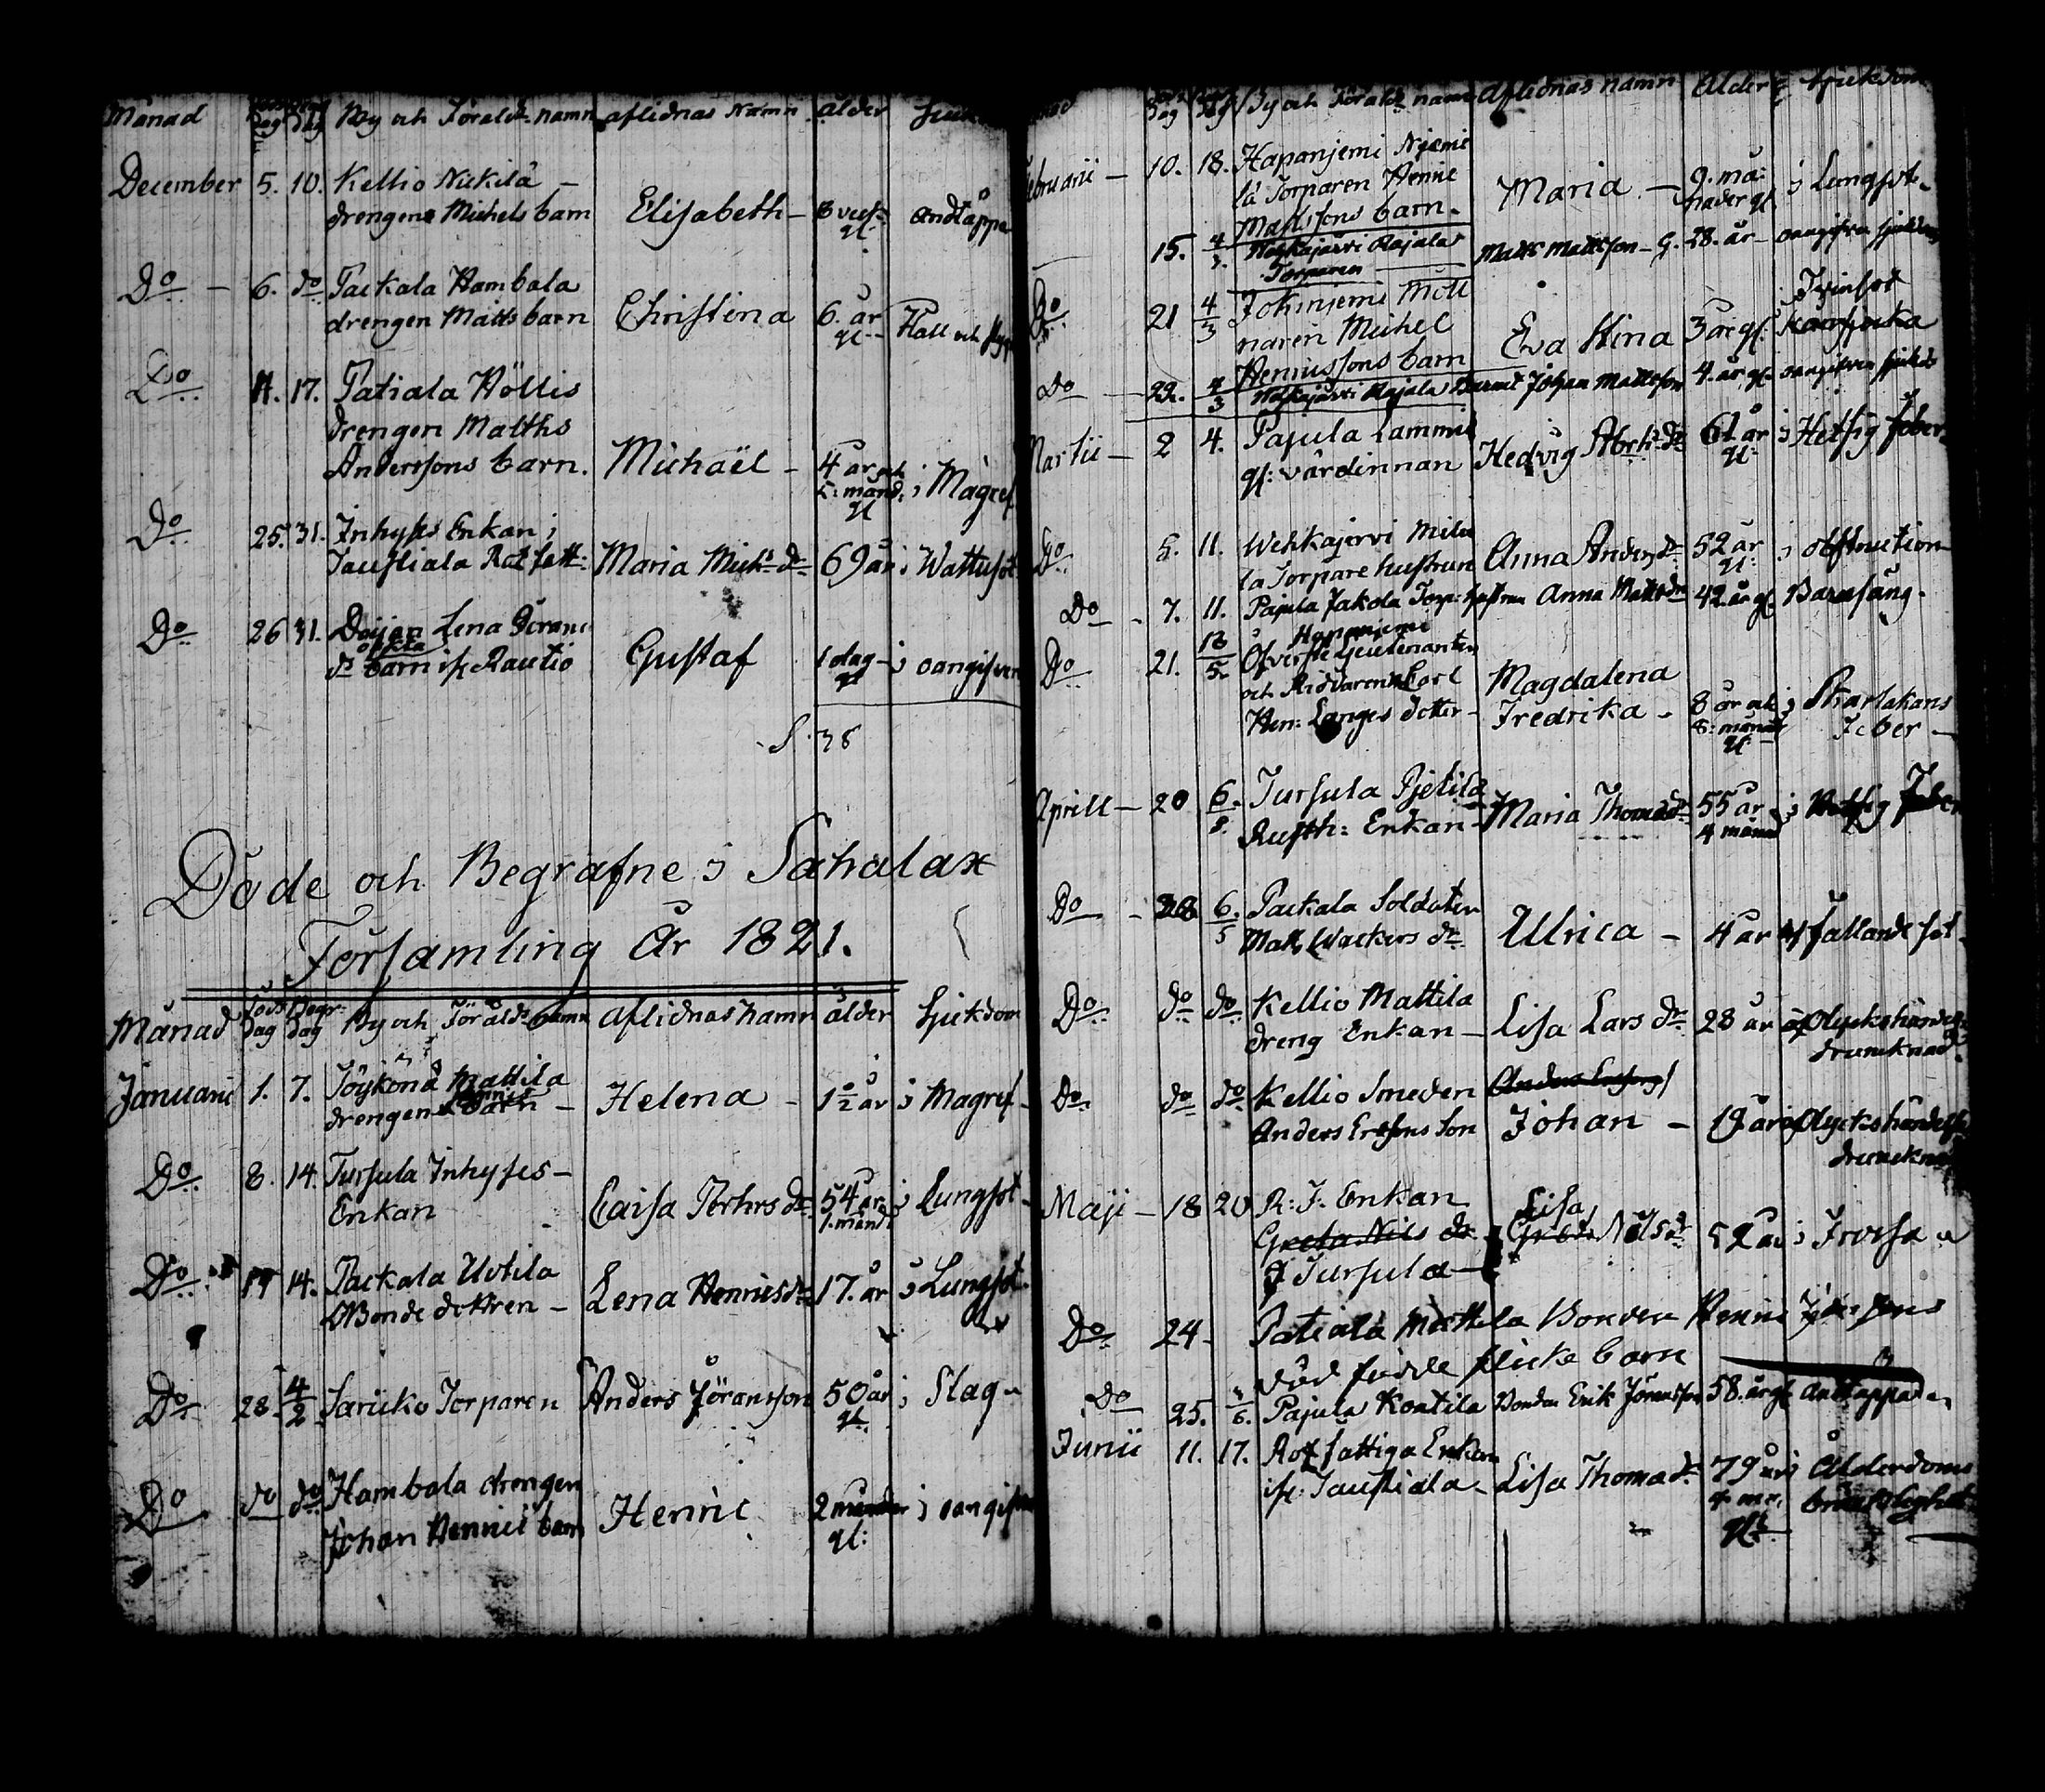 Månad Dag Dag By och Föräld: namn aflidnas Namn ålder
December 5. 10. Kellio Nickilä –
drengens Michels barn Elisabeth – 3 veck: gl: andtäppa
Do – 6. do Packala Hambala
drengen Matts barn Christina 6. år gl – Hall och
Do 11. 17. Patiala Höllis
drengen Matths
Anderssons barn. Michaël – 4 år och 5: månd: gl i Magref
Do 25. 31. Inhyses Enkan i
Taustiala Rotfatt: Maria Mich:s dr 69 år i Wattusot
Do 26 31. Lena Göransdr
oäkta
barn if: Rautio Gustaf 1 dag gl – i oangifven
S. 38
Döde och Begrafne i Sahalax
Församling År 1821.
Månad Död Dag Begr: Dag By och Föräld: namn aflidnas namn ålder Sjukdom
Januarii 1. 7. Töykönä Mattila
drengens barn – Helena – 1½ år i Magref –
Do 8. 14. Tursula Inhyses –
Enkan Caisa dr 54 år 1. månd: i Lungsot –
Do 14. Packala Uotila
Bonde dottren – Lena Henricsdr 17. år i Lungsot
Do 28. 4/2 Sariko Torparen Anders Jöransson 50 år gl. i Slag –
Do do do Hambala drengen
Johan Henrics barn Henric 2 månader gl: i oangifven
Dag Dag By och Föräld: namn aflidnas namn ålder Sjukdom
Februarii – 10. 18. Hapanjemi Njemi
lä Torparen Henric
Matssons barn. Maria – 9. månader gl. i Lungsot.
15. 4/3. Wehkajärvi Rajalas
Torparen Matts Mattsson – G. 28. år – oangifven sjukdom
Do 21 4/3 Jokinjemi Möll
naren Michel
Henricssons barn Eva Stina 3 år gl: Tvinsot
Do 22. 4/3 Wehkajärvi Rajala Barnet Johan Mattsson 4. år gl. oangifven sjukd:
Martii – 2 4. Pajula Lammi
gl: värdinnan Hedvig Abrh:s dr 61 år gl: i Hetsig feber
Do 5. 11. Wehkajervi Mila
la Torpare hustrun Anna Anders dr 52 år gl: i obstruction
Do 7. 11. Pajula Jakola Torp: hustrun Anna Mattsdr 42 år gl. Barnsäng.
Hapanjemi
Do 21. Öfverste Leutenanten
och Riddaren Carl
Hen: Langes dotter – Magdalena
Fredrika – 8 år och 8: månad gl: i Skarlakans
Feber –
Aprill – 20 6/5. Tursula Pjetilä
Rusth: Enkan – Maria Thomasdr 55 år 4 månad i Hetsig Feber
Do – 28 6/5 Packala Soldaten
Matts Wackers dr Ulrica – 4 år af fallande sot –
Do do do Kellio Mattila
dreng Enkan – Lisa Lars dr 28 år af Olyckshändelse
drunknad
Do do do Kellio Smeden
Anders Ersons Son Johan – 19 år af Olyckshändelse
drunknad
Maji – 18 20 R: F: Enkan
Greta Nils dr Lisa Nils dr 52 år i Frossa
i Tursula –
Do 24 – Patiala Mattila Bonden Henric
död födde flicke barn
Do 25. Pajula Kontila Bonden Erik Jöransson 58. år gl. andtäppa
Junii 11. 17. Rot fattiga Enkan
if: Taustiala – Lisa Thomasdr 79 år gl: i Ålderdoms
bräcklighet